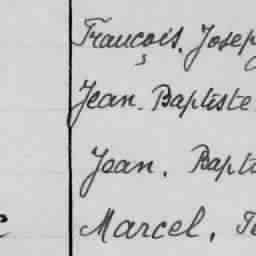 François. Josep
Jean. Baptiste
Jean. Bapt
Marcel.